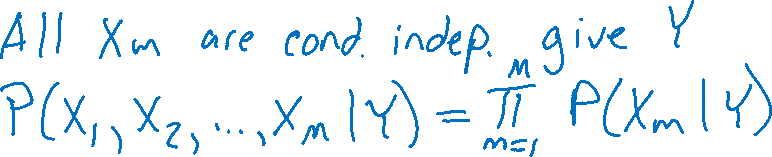 All Xm are cond. indep. give Y
P(X₁, X₂, ..., Xm | Y) = ∏_{m=1}^{M} P(Xm | Y)